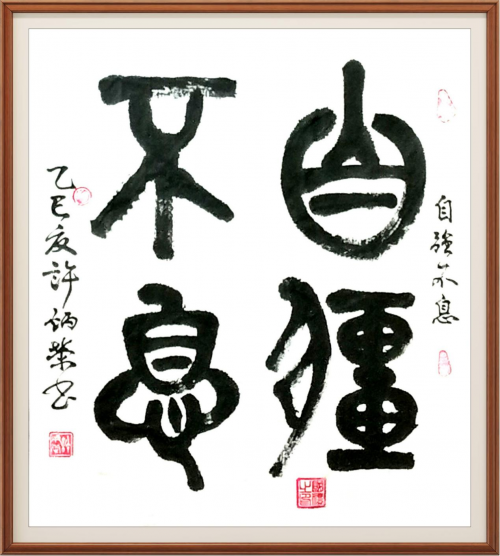 自強不息
自彊
不息
乙巳夏許炳榮书